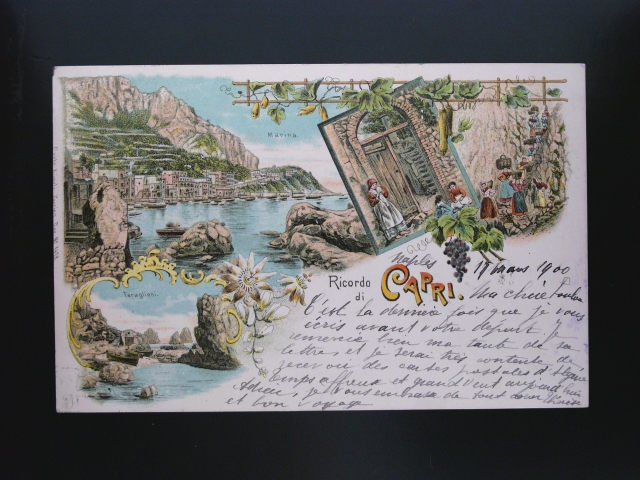 Marina.
Faraglioni.
Ricordo
di
CAPRI.
Naples 17 mars 1900
Ma chère
C'est la dernière fois que je vous
écris avant votre départ. Je
remercie bien ma tante de sa
lettre, et je serai très contente de
recevoir des cartes postales d'
temps affreux et grand vent aujourd'hui
Adieu, je vous embrasse de tout cœur
et bon voyage